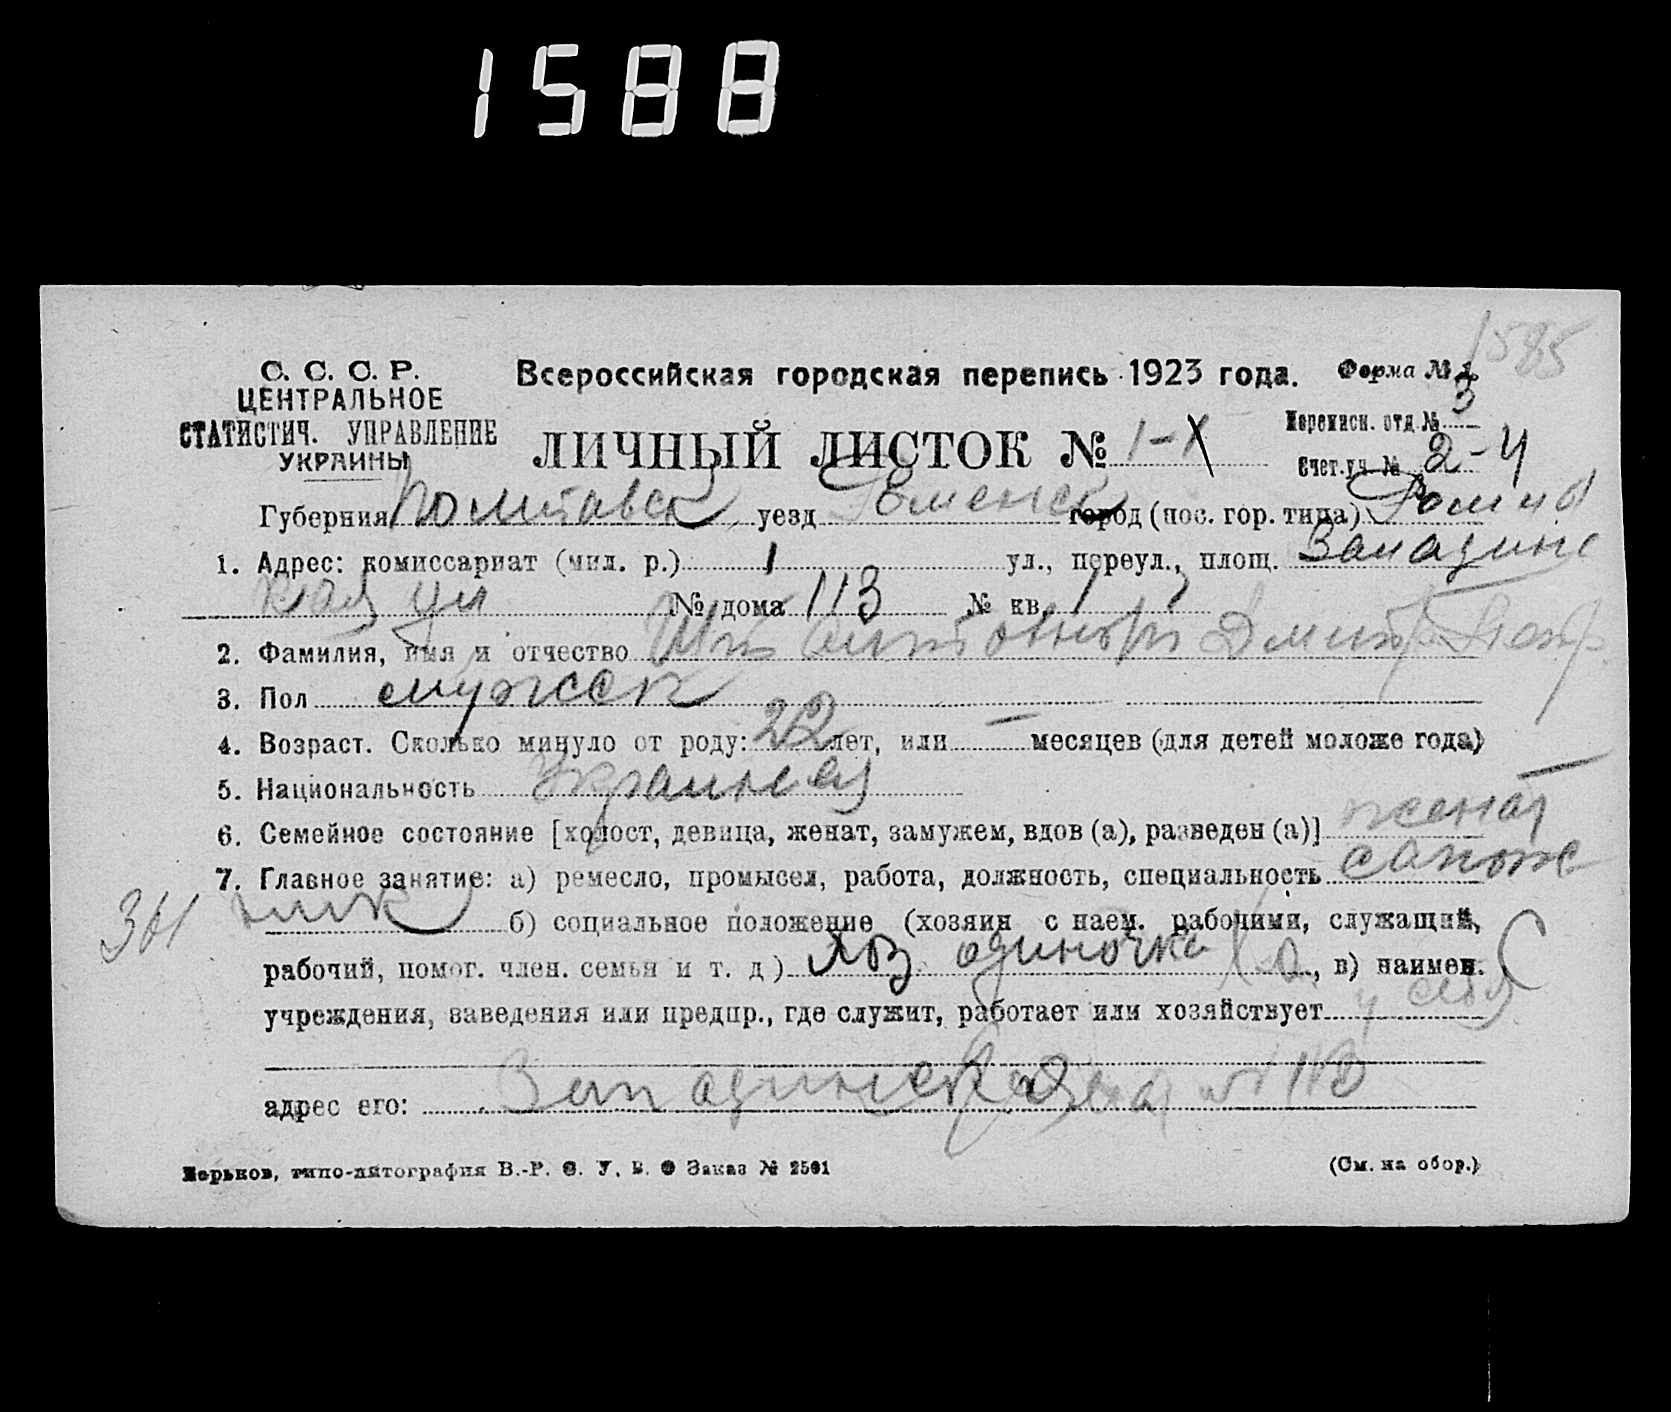 1588
1585
С. С. С. Р.
ЦЕНТРАЛЬНОЕ
СТАТИСТИЧ. УПРАВЛЕНИЕ
УКРАИНЫ
Всероссийская городская перепись 1923 года. Форма № 1
ЛИЧНЫЙ ЛИСТОК № 1-
Переписн. отд. № 3
Счет. уч. № 2-4
Губерния Полтавск уезд Роменск город (пос. гор. типа) Ромны
1. Адрес: комиссариат (мил. р.) 1 ул., переул., площ. Западинс
кая ул № дома 113 № кв. 1
2. Фамилия, имя и отчество Дмитр Петр
3. Пол мужск
4. Возраст. Сколько минуло от роду: 22 лет, или — месяцев (для детей моложе года)
5. Национальность Украинся
6. Семейное состояние [холост, девица, женат, замужем, вдов (а), разведен (а)] женат
7. Главное занятие: а) ремесло, промысел, работа, должность, специальность сапож
361 ник б) социальное положение (хозяин с наем. рабочими, служащий,
рабочий, помог. член. семьи и т. д.) хоз. одиночка , в) наимен.
учреждения, заведения или предпр., где служит, работает или хозяйствует у себя
адрес его: Западинская № 113
Харьков, типо-литография В.-Р. С. У. В. О Заказ № 2501 (См. на обор.)